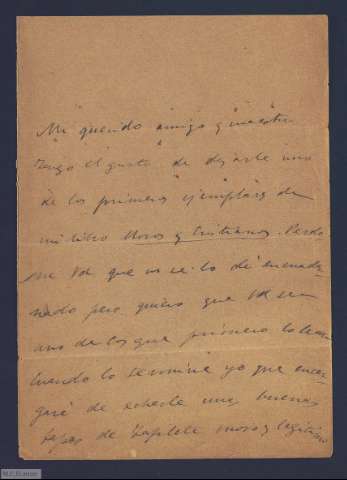 Mi querido amigo y maestro
Tengo el gusto de dejarle uno
de los primeros ejemplares de
mi libro Moros y Cristianos. Perdo
ne Vd que no se lo dé encuader
nado pero quiero que Vd sea
uno de los que primero lo lean
Cuando lo termine yo que encar
garé de echarle unas buenas
tapas de tafilete moro y legítimo